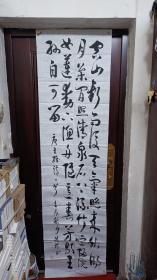 空山新雨後天氣晚來秋明
月松間照清泉石上流竹喧歸浣
女蓮動下漁舟隨意春芳歇王
孫自可留